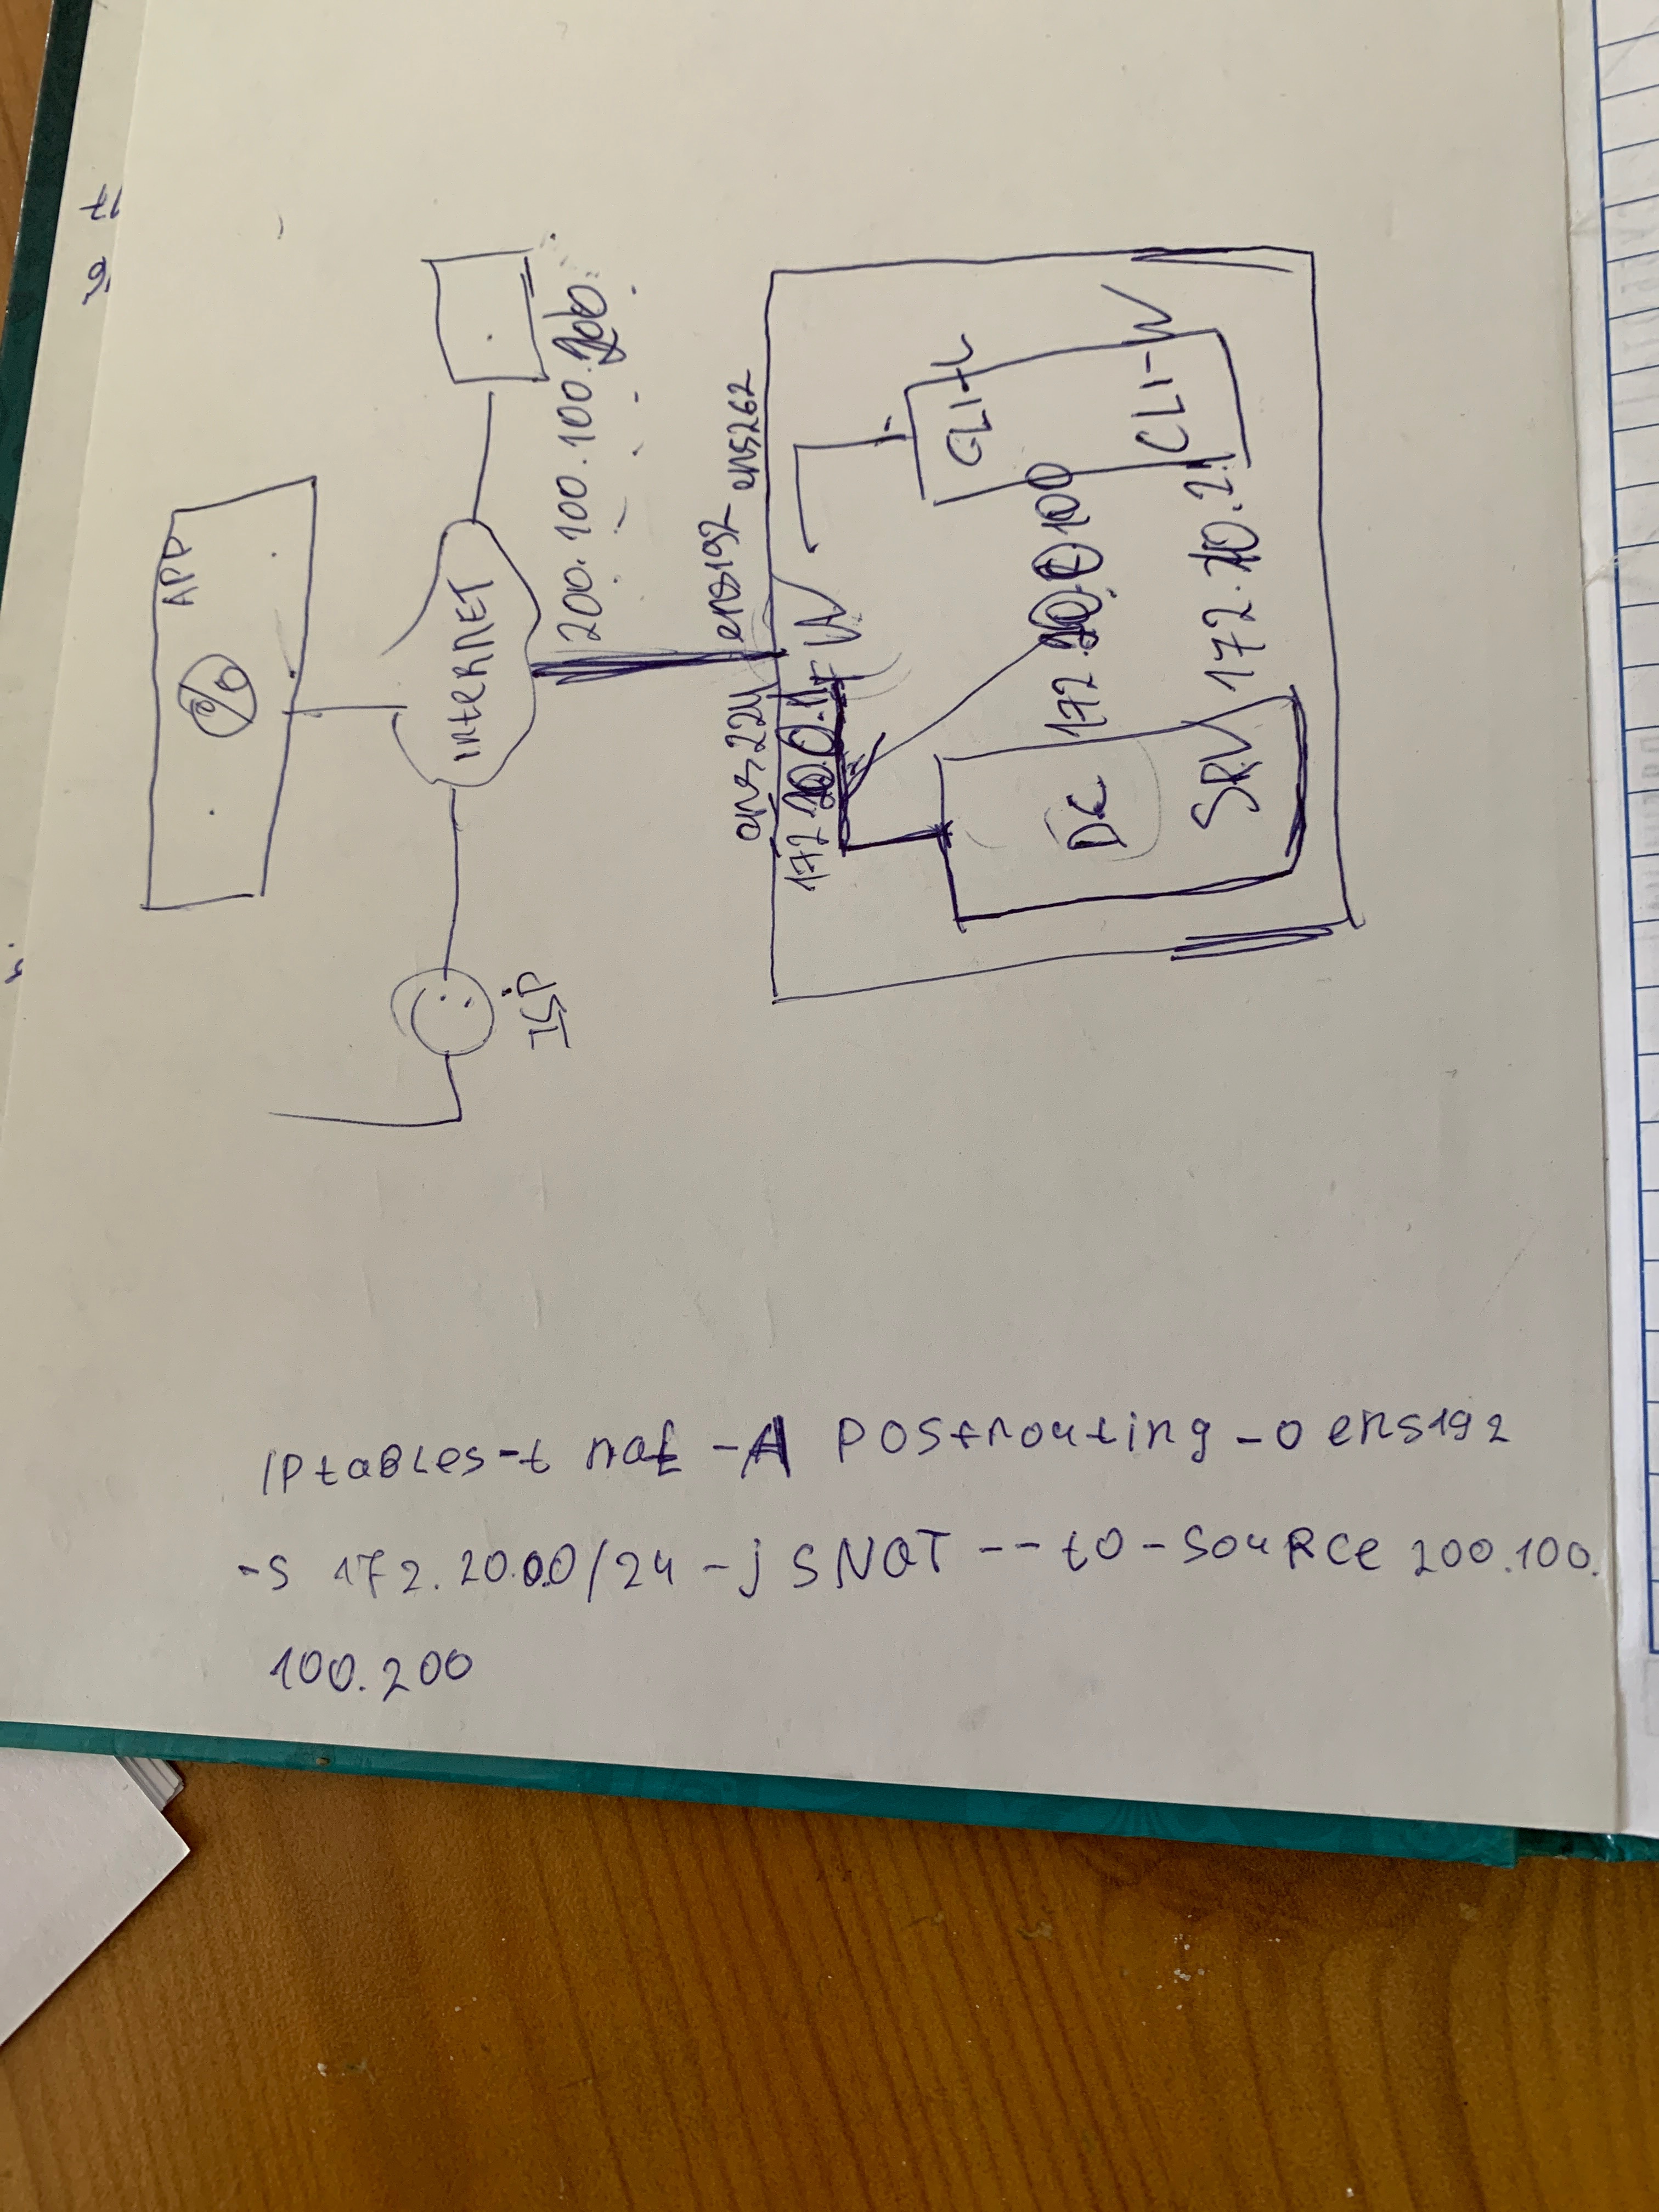 APP
INTERNET
ISP
200.100.100.200
ens224
ens192
ens262
172.20.0.1
FW
CLI-L
CLI-W
DC
172.20.0.100
SRV
172.20.2
IPtaBLes -t nat -A POStrouting -o ens192
-s 172.20.0.0/24 -j SNAT --to-souRce 200.100.
100.200